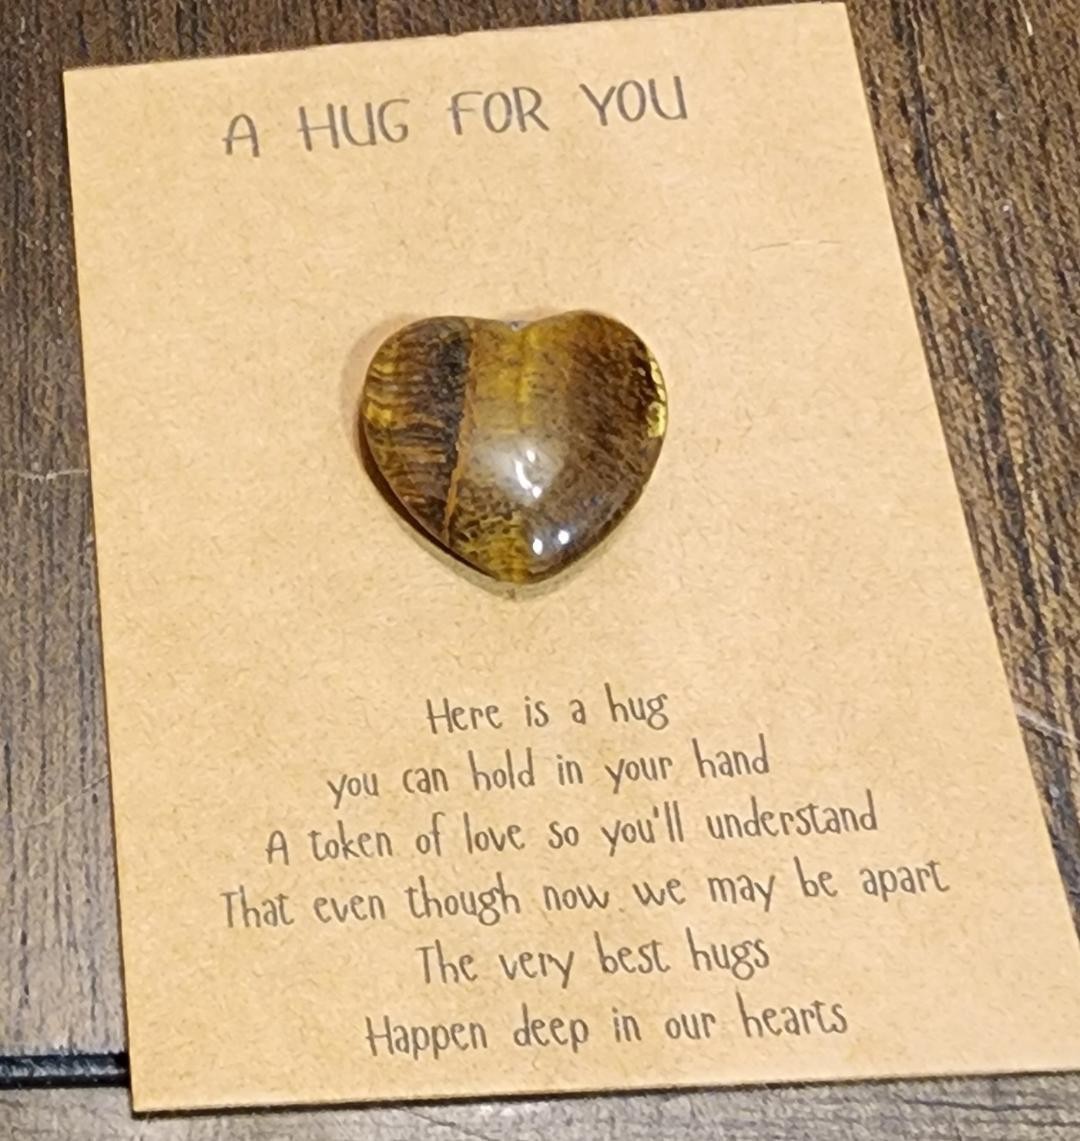 A HUG FOR YOU
Here is a hug
you can hold in your hand
A token of love so you'll understand
That even though now we may be apart
The very best hugs
Happen deep in our hearts